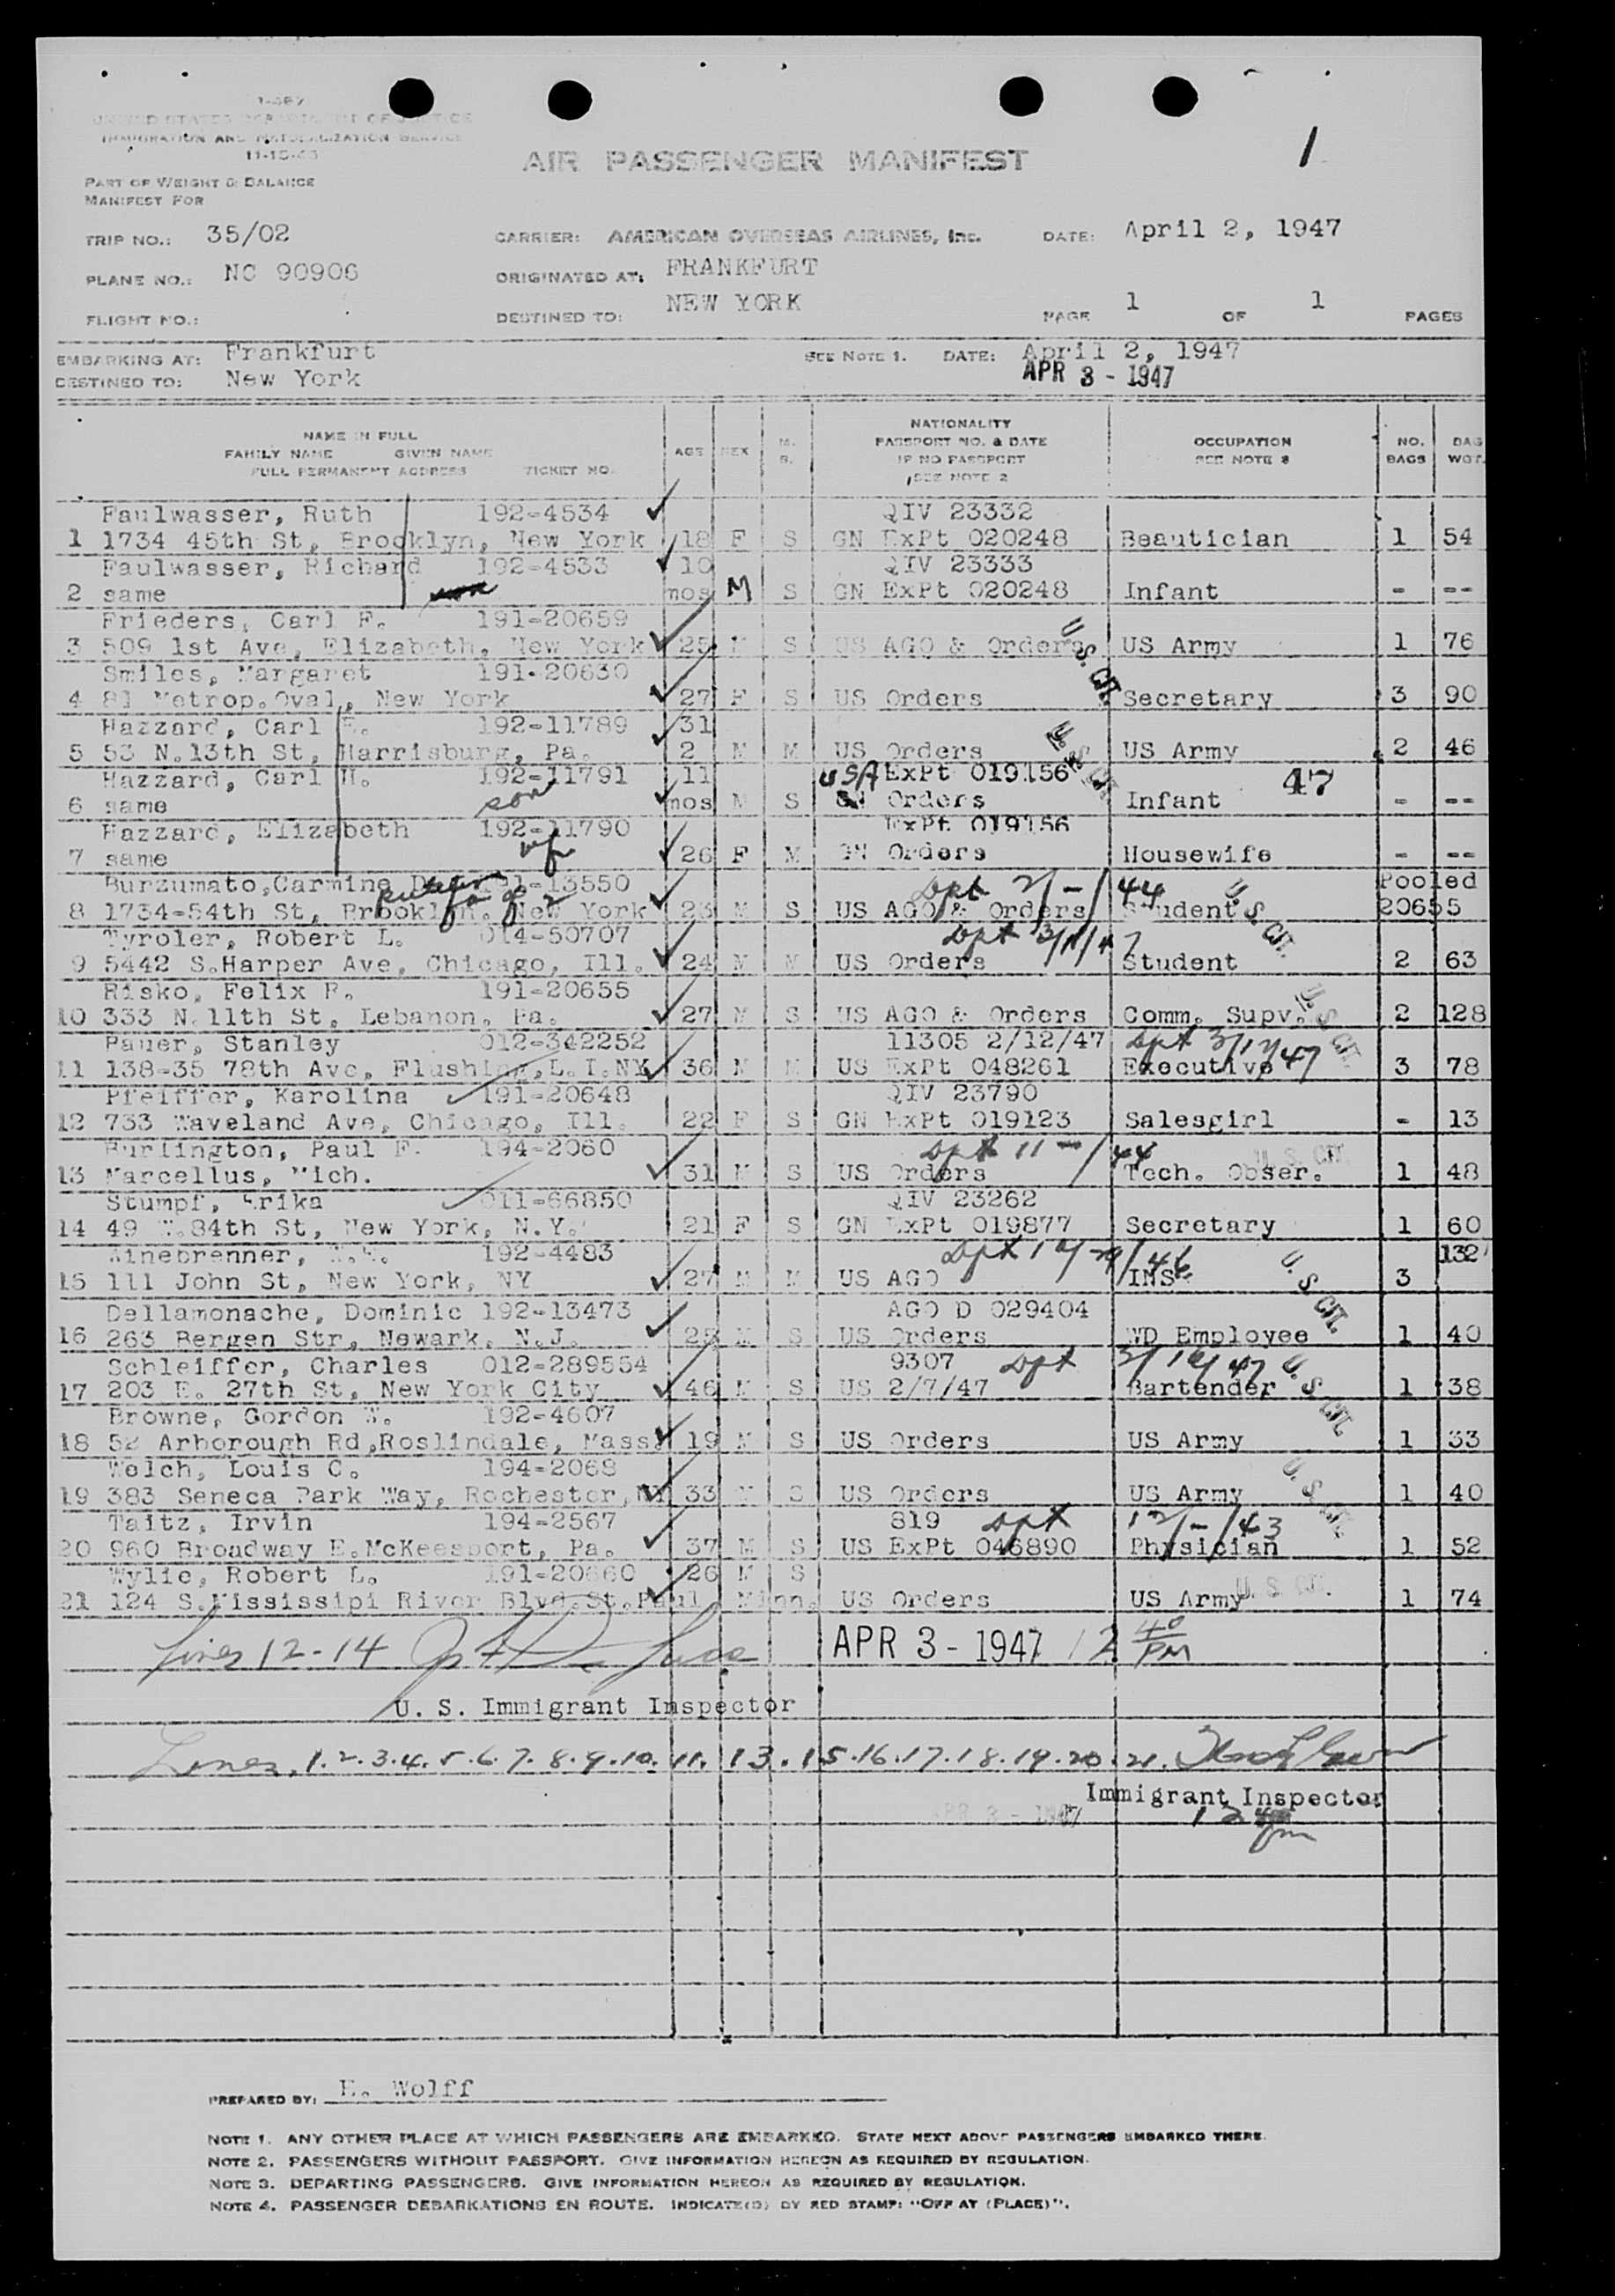 1
AIR PASSENGER MANIFEST
UNITED STATES DEPARTMENT OF JUSTICE
IMMIGRATION AND NATURALIZATION SERVICE
PART OF WEIGHT & BALANCE
MANIFEST FOR
TRIP NO.: 35/02 CARRIER: AMERICAN OVERSEAS AIRLINES, Inc. DATE: April 2, 1947
PLANE NO.: NC 90906 ORIGINATED AT: FRANKFURT
FLIGHT NO.: DESTINED TO: NEW YORK PAGE 1 OF 1 PAGES
EMBARKING AT: Frankfurt SEE NOTE 1. DATE: April 2, 1947
DESTINED TO: New York APR 3 - 1947
NAME IN FULL
FAMILY NAME GIVEN NAME
FULL PERMANENT ADDRESS TICKET NO. AGE SEX M. S. NATIONALITY PASSPORT NO. & DATE IF NO PASSPORT SEE NOTE 2 OCCUPATION SEE NOTE 3 NO. BAGS BAG WGT.
Faulwasser, Ruth 192-4534 QIV 23332
1 1734 45th St, Brooklyn, New York 18 F S GN ExPt 020248 Beautician 1 54
Faulwasser, Richard 192-4533 10 QIV 23333
2 same mos M S GN ExPt 020248 Infant - --
Frieders, Carl F. 191-20659
3 509 1st Ave, Elizabeth, New York 25 M S US AGO & Orders US Army 1 76
U. S. CIT.
Smiles, Margaret 191-20630
4 81 Metrop.Oval, New York 27 F S US Orders Secretary 3 90
Hazzard, Carl 192-11789 31
5 53 N.13th St, Harrisburg, Pa. 2 M M US Orders US Army 2 46
U. S. CIT.
Hazzard, Carl H. 192-11791 11 USA ExPt 019156 47
6 same son mos M S GN Orders Infant - --
Hazzard, Elizabeth 192-11790 ExPt 019156
7 same wf 26 F M GN Orders Housewife - --
Burzumato, Carmine 13550 Dpt 2/-/44 Pooled
8 1734-54th St, Brooklyn, New York 23 M S US AGO & Orders Student 20655
U. S. CIT.
Tyroler, Robert L. 014-50707 Dpt 3/11/47
9 5442 S.Harper Ave, Chicago, Ill. 24 M M US Orders Student 2 63
Risko, Felix P. 191-20655
10 333 N.11th St, Lebanon, Pa. 27 M S US AGO & Orders Comm. Supv. 2 128
U. S. CIT.
Pauer, Stanley 012-342252 11305 2/12/47 Dpt 3/17/47
11 138-35 78th Ave, Flushing,L.I.NY 36 M M US ExPt 048261 Executive 3 78
Pfeiffer, Karolina 191-20648 QIV 23790
12 733 Waveland Ave, Chicago, Ill. 22 F S GN ExPt 019123 Salesgirl - 13
Burlington, Paul F. 194-2060 Dpt 11-/44
13 Marcellus, Mich. 31 M S US Orders Tech. Obser. 1 48
U. S. CIT.
Stumpf, Erika 011-66850 QIV 23262
14 49 W.84th St, New York, N.Y. 21 F S GN ExPt 019877 Secretary 1 60
Winebrenner, 192-4483 Dpt 132
15 111 John St, New York, NY 27 M M US AGO INS 3
U. S. CIT.
Dellamonache, Dominic 192-13473 AGO D 029404
16 263 Bergen Str, Newark, N.J. 25 M S US Orders WD Employee 1 40
Schleiffer, Charles 012-289554 9307 Dpt
17 203 E. 27th St, New York City 46 M S US 2/7/47 Bartender 1 38
U. S. CIT.
Browne, Gordon 192-4607
18 52 Arborough Rd,Roslindale, Mass. 19 M S US Orders US Army 1 33
Welch, Louis C. 194-2068
19 383 Seneca Park Way, Rochester,NY 33 M S US Orders US Army 1 40
U. S. CIT.
Taitz, Irvin 194-2567 819 Dpt 12/-/43
20 960 Broadway E.McKeesport, Pa. 37 M S US ExPt 046890 Physician 1 52
Wylie, Robert L. 191-20660 26 M S
21 124 S.Mississipi River Blvd.St.Paul, Minn. US Orders US Army 1 74
U. S. CIT.
Lines 12-14 APR 3 - 1947 12 40 PM
U. S. Immigrant Inspector
Lines, 1.2.3.4.5.6.7.8.9.10.11.13.15.16.17.18.19.20.21.
Immigrant Inspector
APR 3 - 1947
PREPARED BY: E. Wolff
NOTE 1. ANY OTHER PLACE AT WHICH PASSENGERS ARE EMBARKED. STATE NEXT ABOVE PASSENGERS EMBARKED THERE.
NOTE 2. PASSENGERS WITHOUT PASSPORT. GIVE INFORMATION HEREON AS REQUIRED BY REGULATION.
NOTE 3. DEPARTING PASSENGERS. GIVE INFORMATION HEREON AS REQUIRED BY REGULATION.
NOTE 4. PASSENGER DEBARKATIONS EN ROUTE. INDICATE(D) BY RED STAMP: "OFF AT (PLACE)".